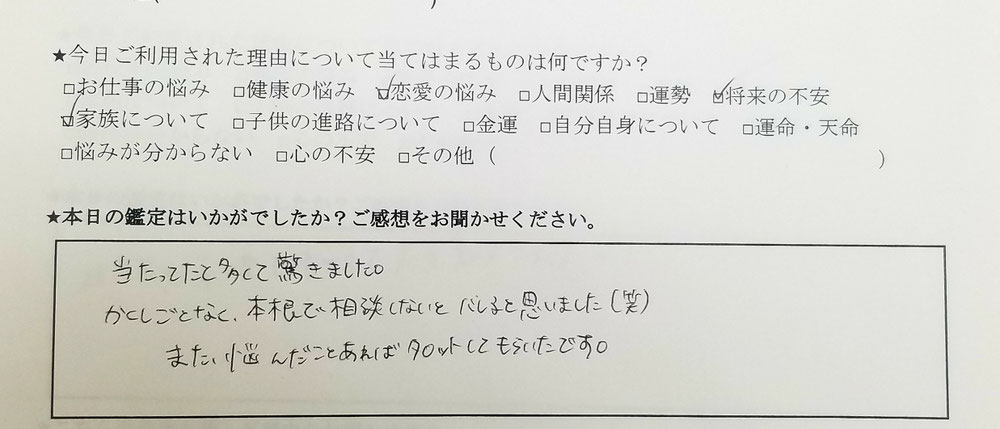 (                                    )
★今日ご利用された理由について当てはまるものは何ですか？
□お仕事の悩み □健康の悩み ☑恋愛の悩み □人間関係 □運勢 ☑将来の不安
☑家族について □子供の進路について □金運 □自分自身について □運命・天命
□悩みが分からない □心の不安 □その他（                                    ）
★本日の鑑定はいかがでしたか？ご感想をお聞かせください。
当たってたと多くて驚きました。
かくしごとなく、本根で相談しないとバレると思いました(笑)
またい悩んだことあればタロットしてもらいたです。